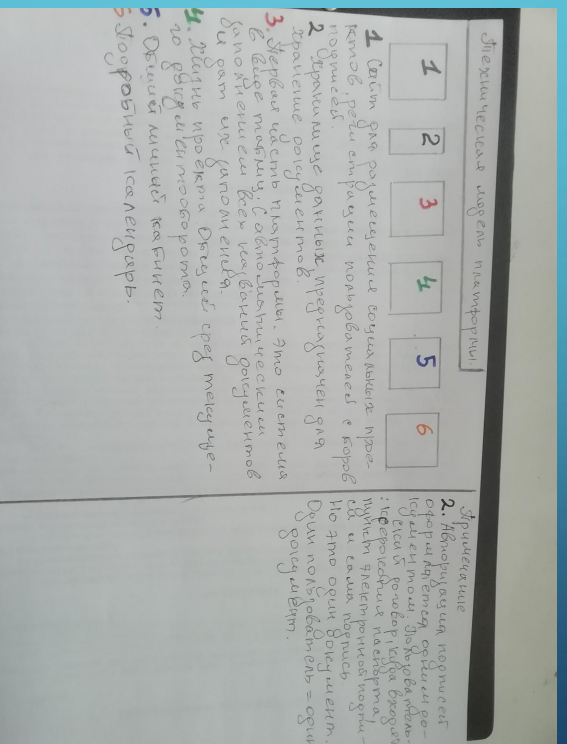 Техническая модель платформы.
1 2 3 4 5 6
1 Сайт для размещения социальных прое-
ктов, регистрации пользователей с боров
подписей.
2 Хранилище данных, предназначен для
хранение документов.
3. Первая часть платформы. Это система
в виде таблиц, с автоматическим
заполнением всех названий документов
и дат их заполнения.
4. Жизнь проекта. Общий сред текуще-
го документооборота.
5. Общий личный кабинет.
6 Подробный календарь.
Примечание
2. Авторизация подписей
оформляется одним до-
кументом. Пользователь-
ский договор, куда входят
: ксерокопия паспорта,
пункт электронной подпи-
си и сама подпись
Но это один документ.
Один пользователь = один
документ.